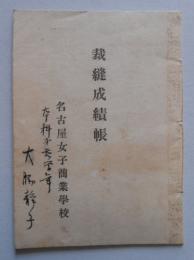 裁縫成績帳
名古屋女子商業學校
本科第 學年
大 静子